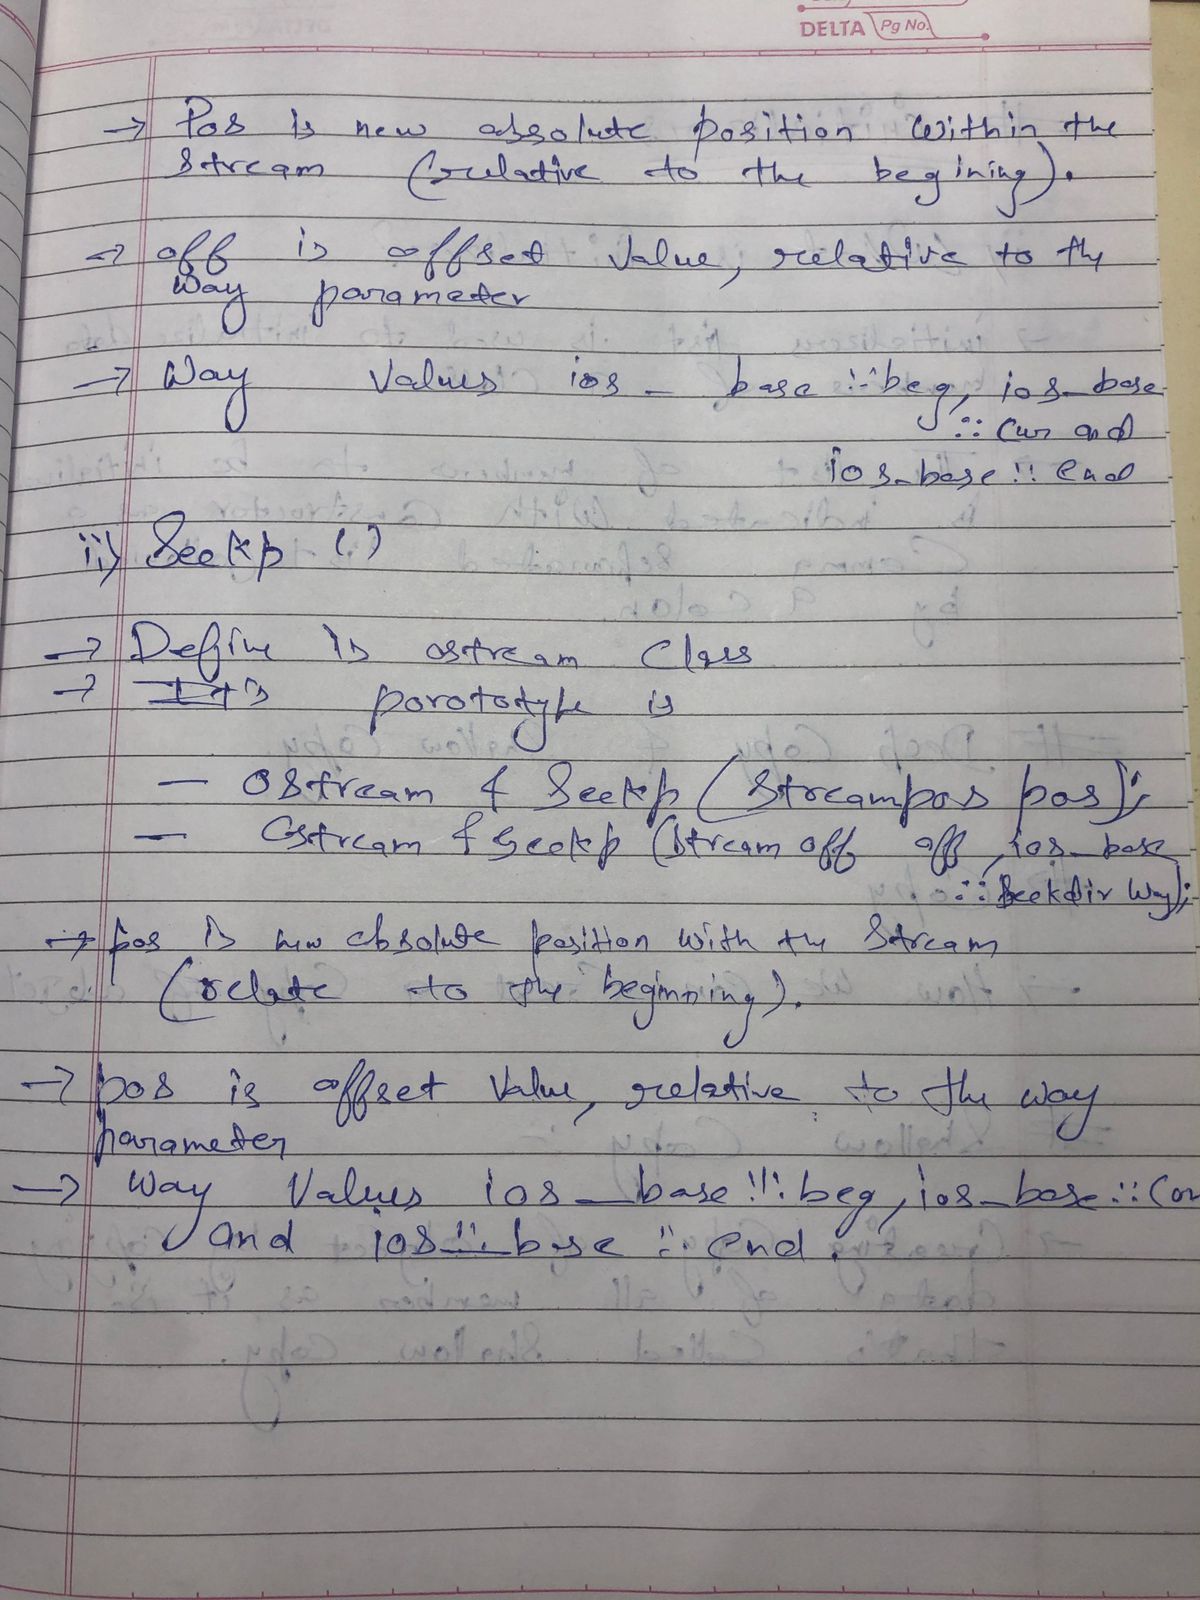 DELTA Pg No.
→ Pos is new absolute position within the
stream (relative to the begining).
→ off is offset value, relative to the
way parameter
→ Way values ios_base::beg, ios_base
::cur and
ios_base::end
ii) Seekp ( )
→ Define is ostream class
→ It's porototype is
— Ostream & Seekp (Streampos pos);
— Ostream & seekp (stream off off, ios_base
::seekdir way);
→ pos is new absolute position with the stream
(relate to the beginning).
→ pos is offset value, relative to the way
parameter
→ way values ios_base::beg, ios_base::cur
and ios::base::end.